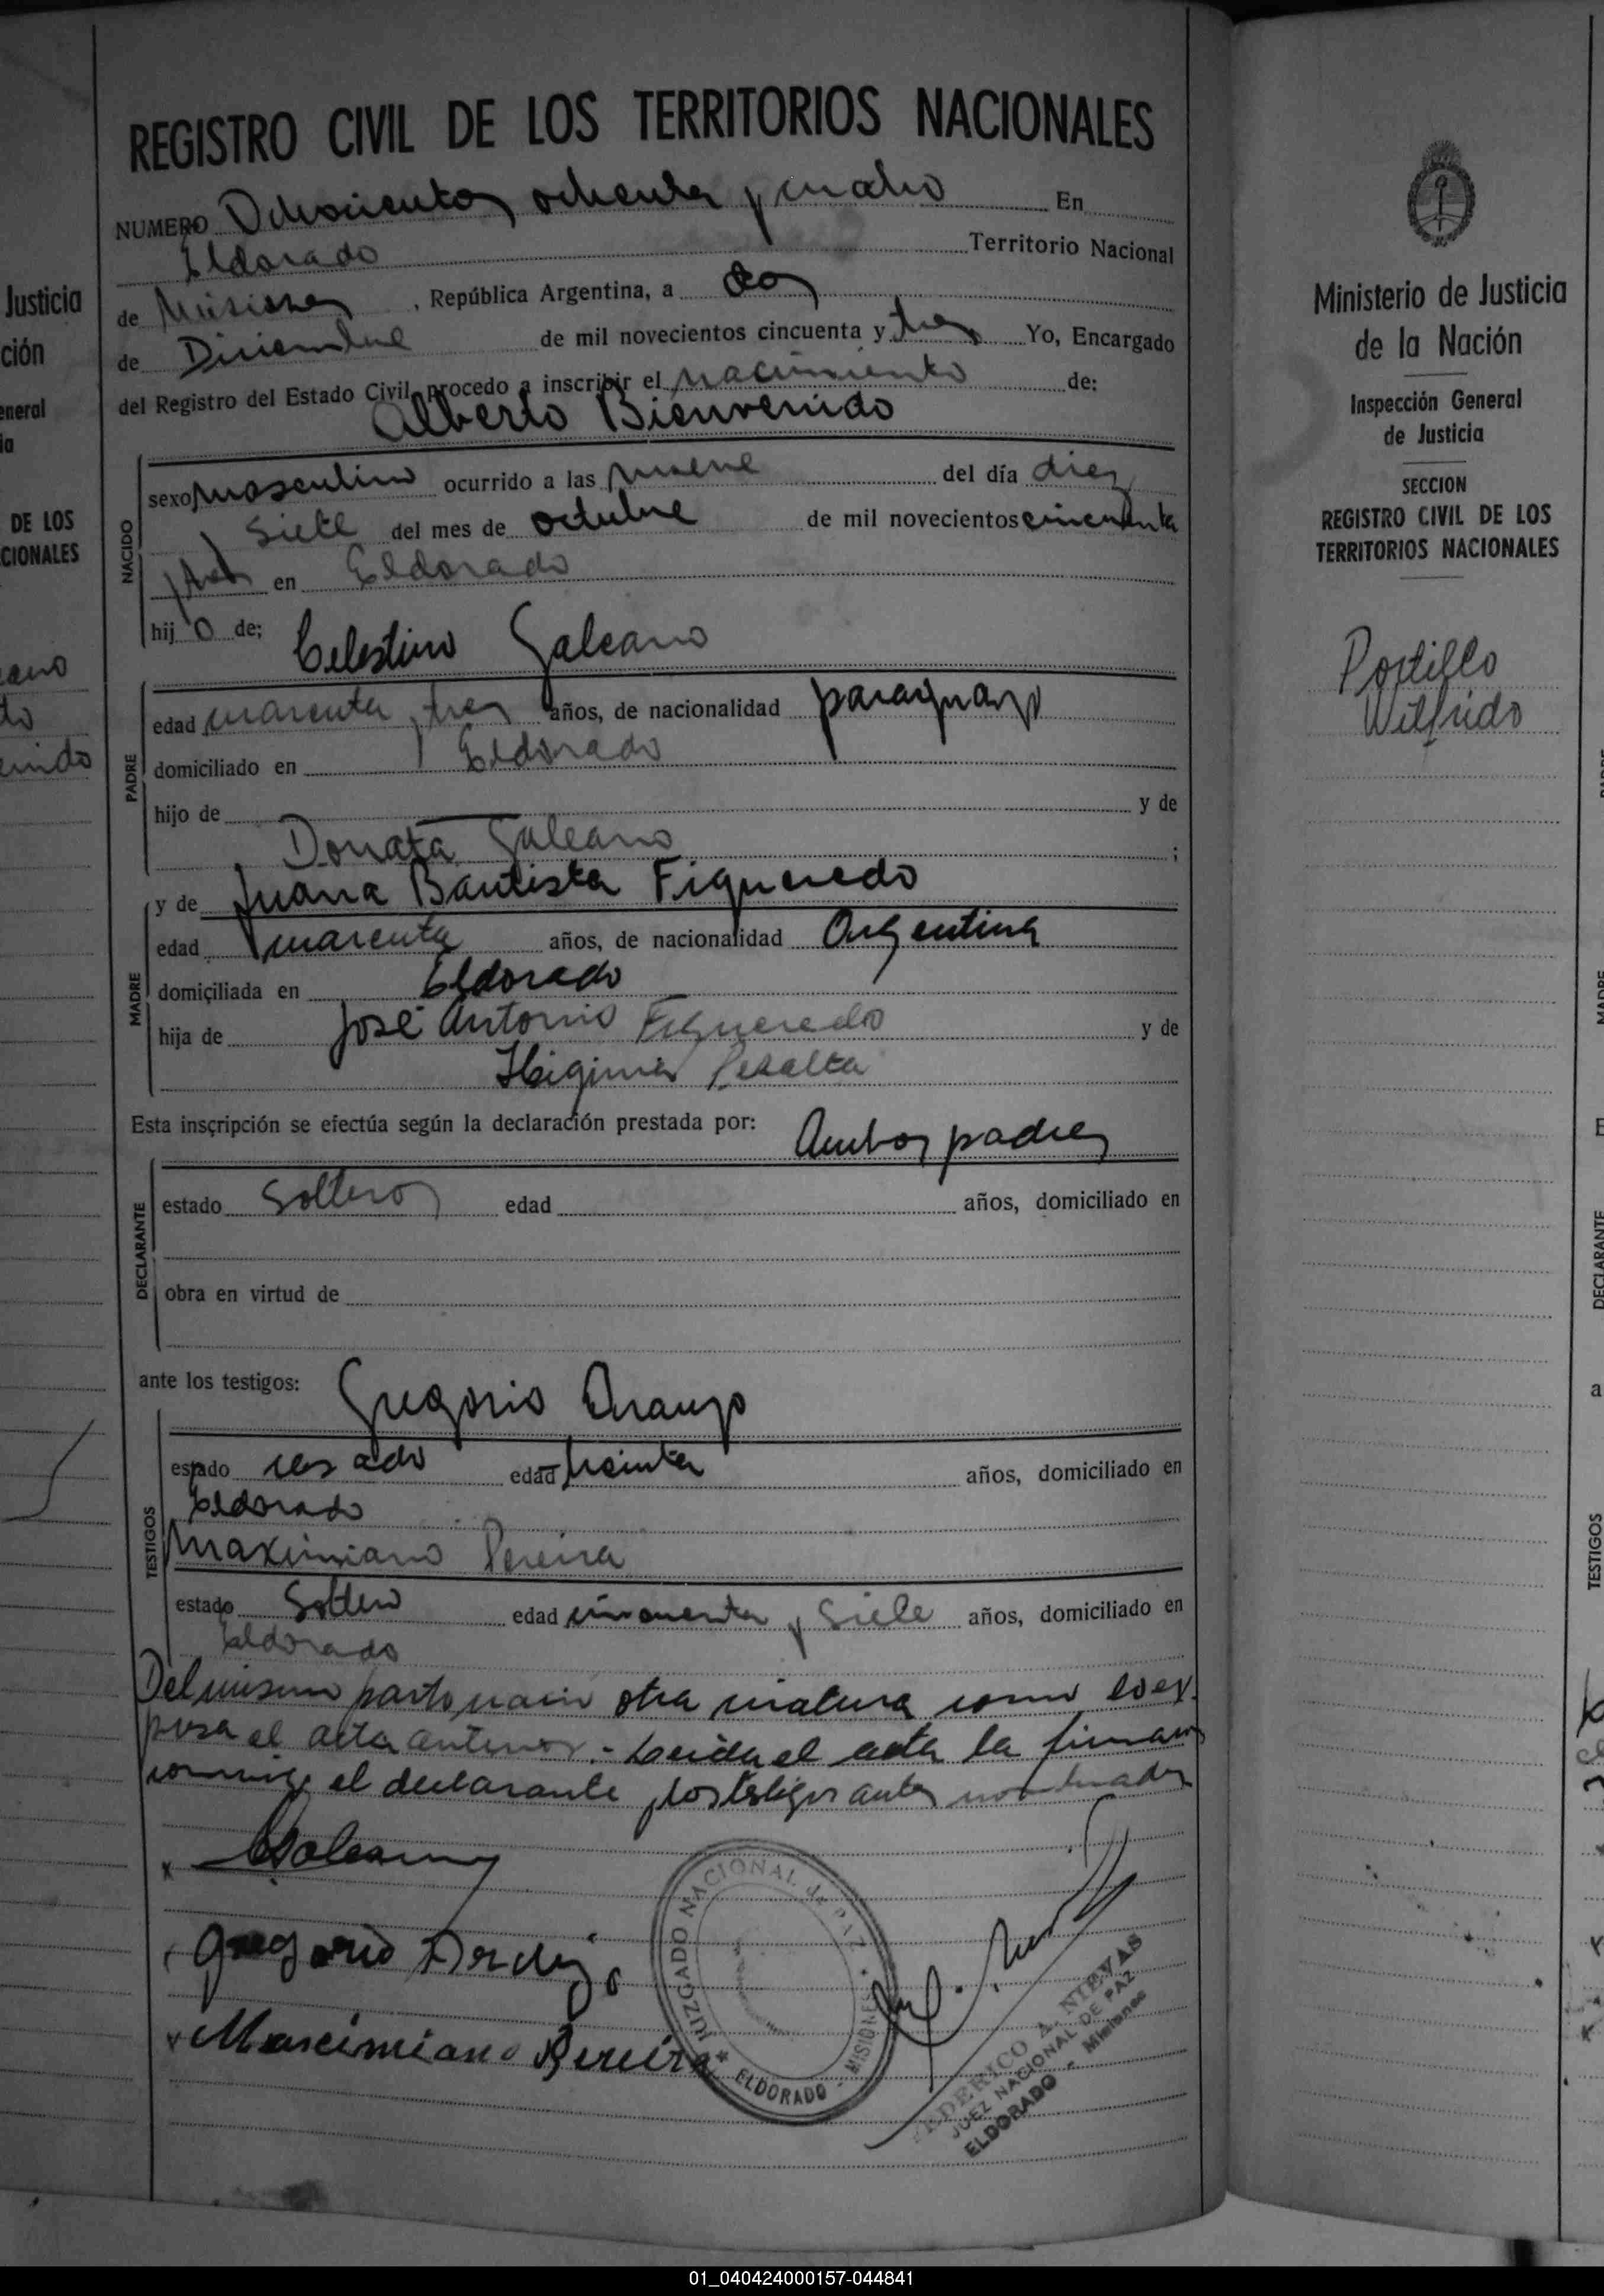 REGISTRO CIVIL DE LOS TERRITORIOS NACIONALES
NUMERO Ochocientos ochenta y cuatro En
Eldorado Territorio Nacional
de Misiones, República Argentina, a dos
de Diciembre de mil novecientos cincuenta y tres Yo, Encargado
del Registro del Estado Civil, procedo a inscribir el nacimiento de:
Alberto Bienvenido
NACIDO
sexo masculino ocurrido a las nueve del día diez
y siete del mes de octubre de mil novecientos cincuenta
y tres en Eldorado
hijo de; Celestino Galeano
PADRE
edad cuarenta y tres años, de nacionalidad paraguayo
domiciliado en Eldorado
hijo de y de
Donata Galeano ;
MADRE
y de Juana Bautista Figueredo
edad cuarenta años, de nacionalidad Argentina
domiciliada en Eldorado
hija de José Antonio Figueredo y de
Higinia Peralta
Esta inscripción se efectúa según la declaración prestada por: Ambos padres
DECLARANTE
estado solteros edad años, domiciliado en
obra en virtud de
ante los testigos: Gregorio Araujo
TESTIGOS
estado casado edad treinta años, domiciliado en
Eldorado
Maximiano Pereira
estado soltero edad cincuenta y siete años, domiciliado en
Eldorado
Del mismo parto nació otra criatura como lo ex-
presa el acta anterior.- Leida el acta la firman
conmigo el declarante y los testigos antes nombrados
Galeano
Gregorio
Marcimiano Pereira
JUZGADO NACIONAL de PAZ
ELDORADO - MISIONES
FEDERICO A. NIEVAS
JUEZ NACIONAL DE PAZ
ELDORADO - Misiones
Ministerio de Justicia
de la Nación
Inspección General
de Justicia
SECCION
REGISTRO CIVIL DE LOS
TERRITORIOS NACIONALES
Portillo
Wilfrido
Justicia
ción
eneral
ia
DE LOS
CIONALES
eano
to
enido
MADRE
DECLARANTE
TESTIGOS
01_040424000157-044841